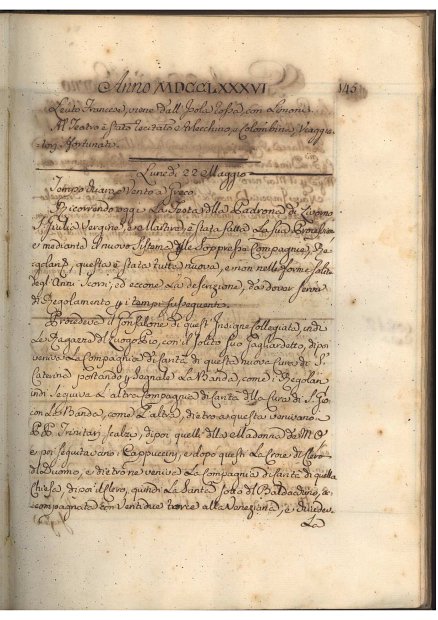 Anno MDCCLXXXVI 145
Leuto Francese, viene dall'Isola Rossa, con Limoni.
Al Teatro è stato recitato Arlecchino, e Colombina Viaggia-
tori Fortunati.
Lunedì 22 Maggio
Tempo Vento a Greco
Ricorrendo oggi La Festa della Padrona di Livorno
S. Giulia Vergine, è stata fatta La Sua Processione
e mediante il nuovo Sistema delle Soppresse Compagnie, e Re-
golari, questa è stata tutta nuova, e non nelle forme solite
degli Anni Scorsi; ed eccone La descrizione, da dover servir
di Regolamento a i tempi susseguenti.
Procedeva il Gonfalone di quest'Insigne Collegiata, indi
Le Ragazze del Luogo Pio, con il Solito Suo Gagliardetto, dipoi
veniva La Compagnia di Carità di questa nuova Cura di S.
Caterina portando p Segnale La Banda, come i Regolari
indi Seguiva L'altra Compagnia di Carità della Cura di S. Gio:
con La Banda, come L'altra, dietro a questa venivano
P.P. Trinitarj Scalzi, dipoi quelli della Madonna di M.
e poi seguitavano i Cappuccini, e dopo questi La Croce del Clero
di Duomo, e dietro ne veniva La Compagnia di Carità di quella
Chiesa, di poi il Clero, quindi La Santa sotto il Baldacchino, ac-
compagnata con Ventidue torce alla Veneziana, e
La